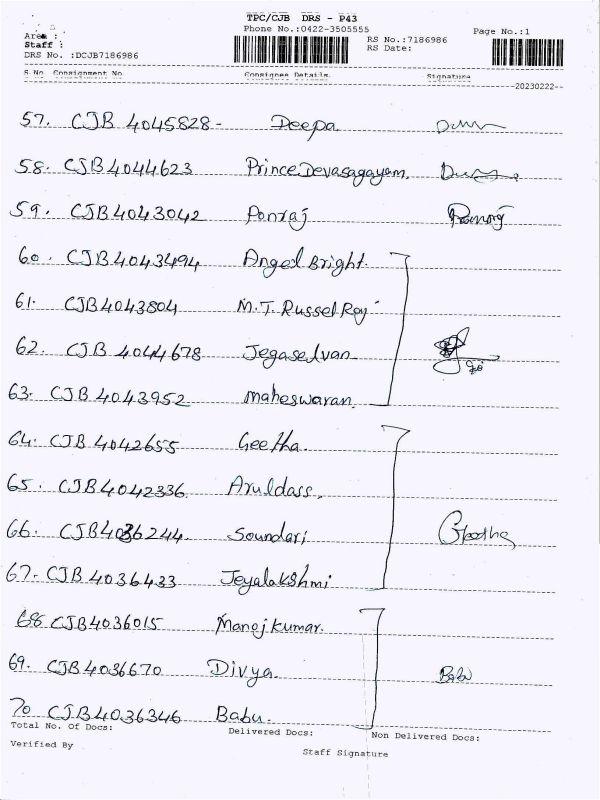 TPC/CJB DRS - P43
Phone No.:0422-3505555
Area :
Staff :
DRS No. :DCJB7186986
RS No.:7186986
RS Date:
Page No.:1
S.No. Consignment No. Consignee Details. Signature
--20230222--
57. CJB 4045828 - Deepa
58. CJB4044623 Prince Devasagayam.
59. CJB4043042 Ponraj
60. CJB4043494 Angel Bright.
61. CJB4043804 M.T. Russel Roy
62. CJB 4044678 Jegaselvan
63. CJB 4043952 Maheswaran.
64. CJB4042655 Geetha.
65. CJB4042336 Aruldass.
66. CJB4036244 Soundari Geetha
67. CJB 4036433 Jeyalakshmi
68 CJB4036015 Manojkumar.
69. CJB4036670 Divya. Babu
70 CJB4036346 Babu.
Total No. Of Docs: Delivered Docs: Non Delivered Docs:
Verified By
Staff Signature